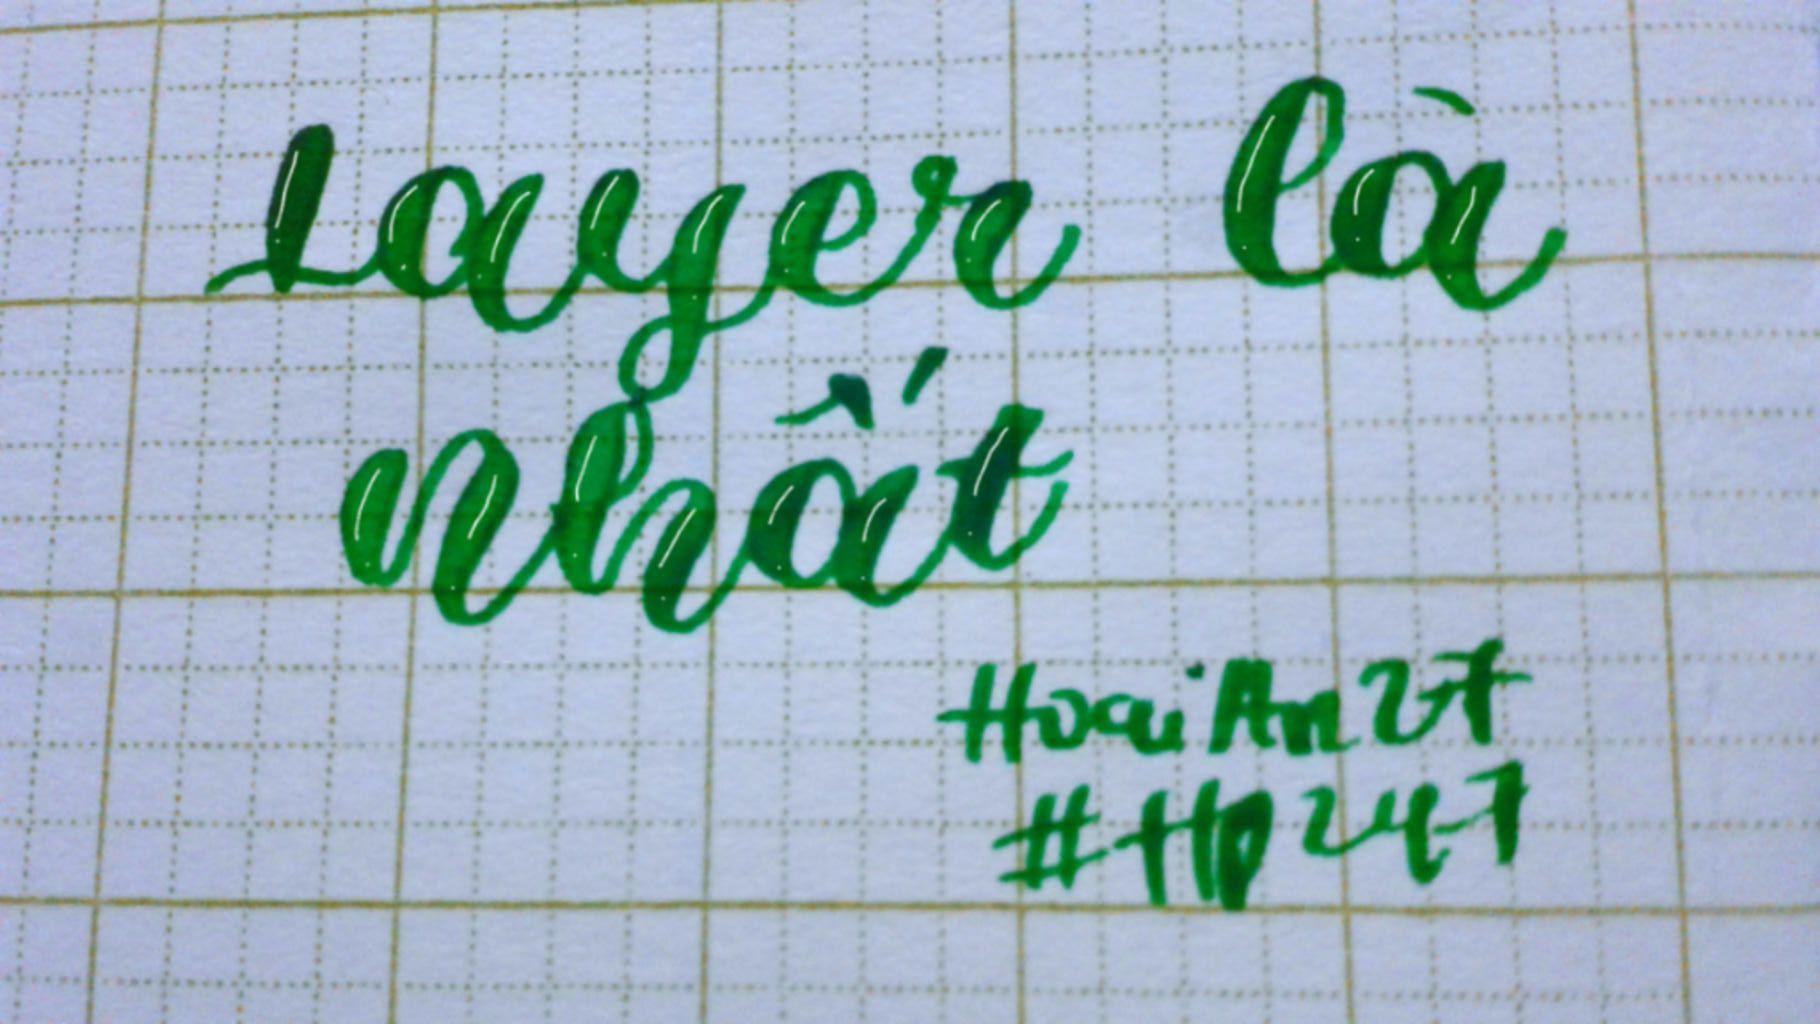 Layer là
nhất
HoaiAn27
#Hp247